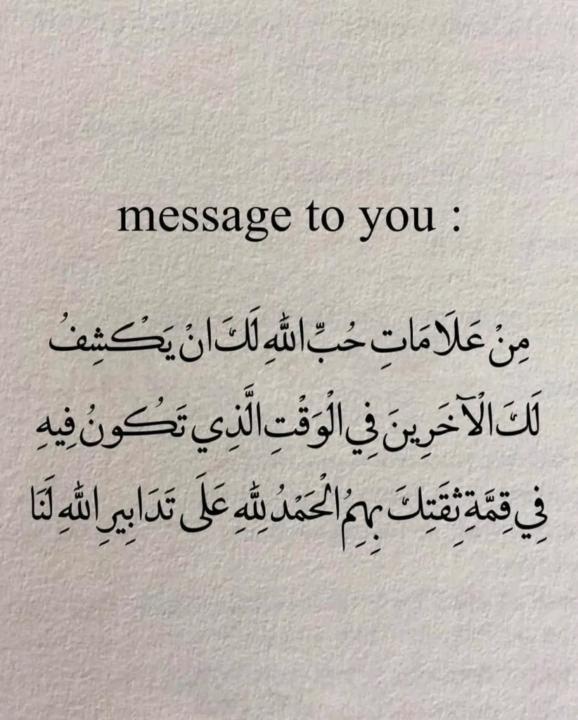 message to you :
مِنْ عَلَامَاتِ حُبِّ اللّٰهِ لَكَ انْ يَكْشِفُ
لَكَ الْآخَرِينَ فِي الْوَقْتِ الَّذِي تَكُونُ فِيهِ
فِي قِمَّةِ ثِقَتِكَ بِهِمُ الْحَمْدُ لِلّٰهِ عَلَى تَدَابِيرِ اللّٰهِ لَنَا